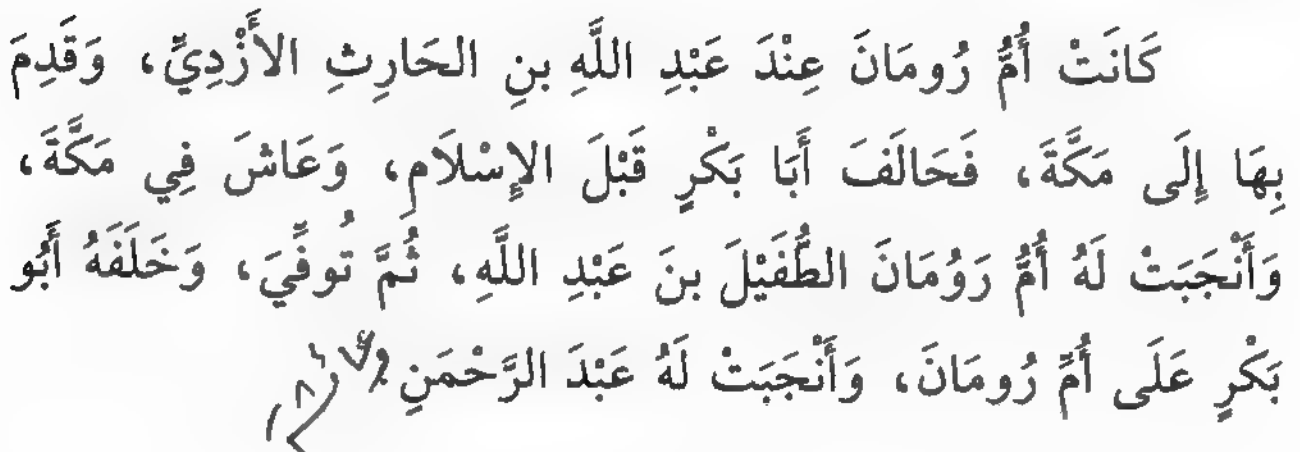 كَانَتْ أُمُّ رُومَانَ عِنْدَ عَبْدِ اللَّهِ بنِ الحَارِثِ الأَزْدِيِّ، وَقَدِمَ
بِهَا إِلَى مَكَّةَ، فَحَالَفَ أَبَا بَكْرٍ قَبْلَ الإِسْلَامِ، وَعَاشَ فِي مَكَّةَ،
وَأَنْجَبَتْ لَهُ أُمُّ رَوُمَانَ الطُّفَيْلَ بنَ عَبْدِ اللَّهِ، ثُمَّ تُوفِّيَ، وَخَلَفَهُ أَبُو
بَكْرٍ عَلَى أُمِّ رُومَانَ، وَأَنْجَبَتْ لَهُ عَبْدَ الرَّحْمَنِ